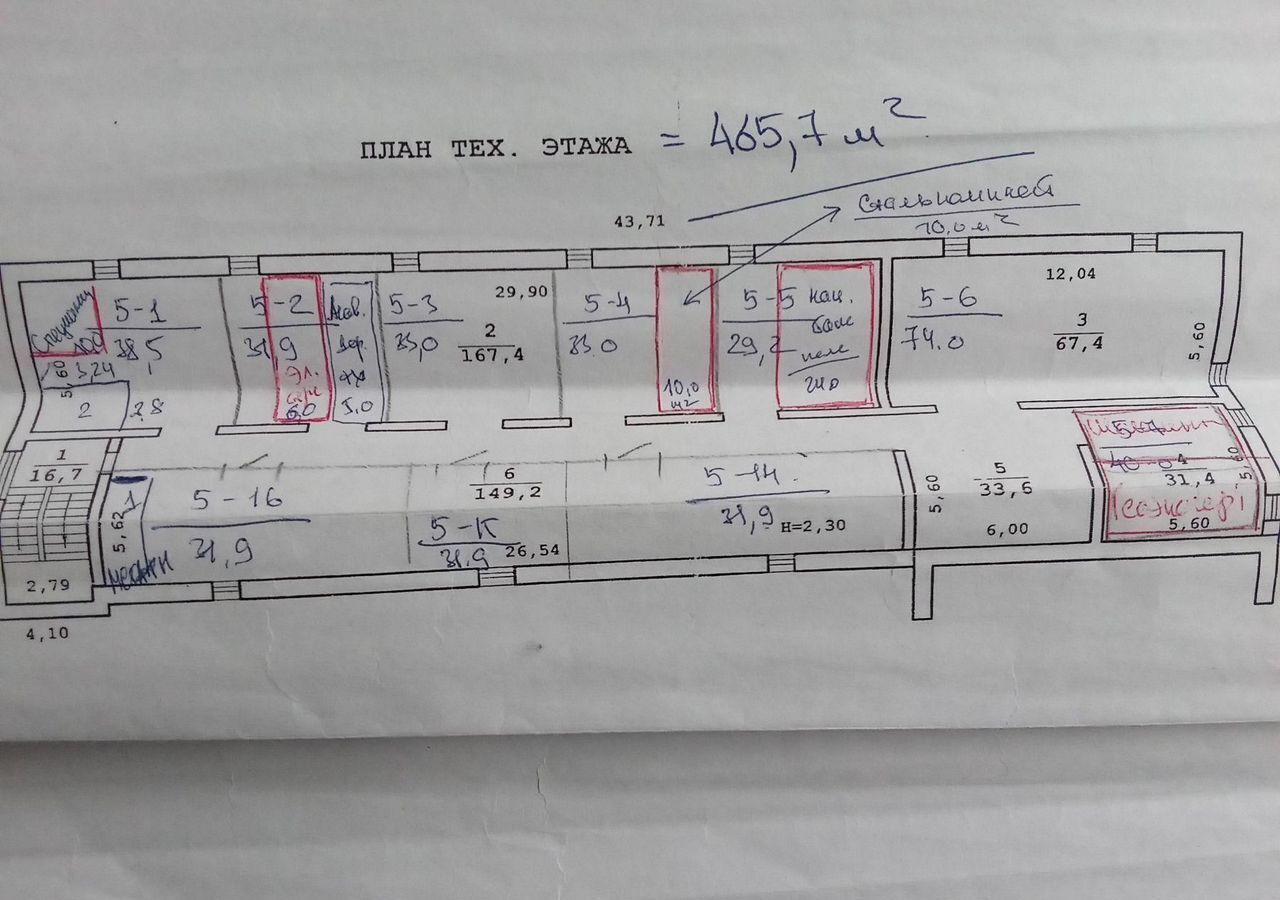 ПЛАН ТЕХ. ЭТАЖА = 465,7 м²
43,71
10,0 м²
12,04
29,90
5-1
38,5
3,24
5,60
2
2,8
5-2
31,9
Эл.
6,0
5,0
5-3
33,0
2
167,4
5-4
33.0
10,0
м2
5-5
29,2
5-6
74.0
3
67,4
5,60
1
16,7
2,79
4,10
1
5,62
5-16
31,9
6
149,2
5-К
31,9
26,54
5-14.
31,9
Н=2,30
5,60
5
33,6
6,00
4
31,4
5,60
5,60